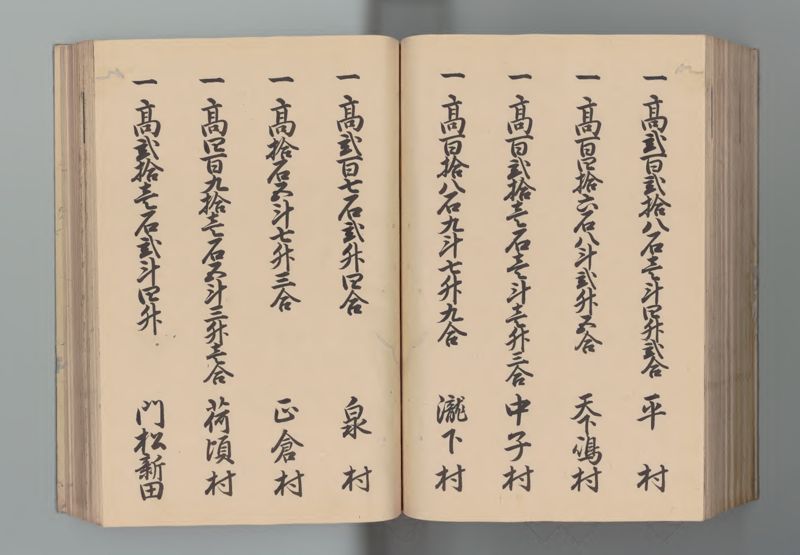 一高弐百弐拾八石壱斗四升弐合 平村
一高百四拾六石八斗弐升五合 天下嶋村
一高百弐拾壱石壱斗壱升三合 中子村
一高百拾八石九斗七升九合 瀧下村
一高弐百七石弐升四合 泉村
一高拾石五斗七升三合 正倉村
一高四百九拾壱石五斗三升壱合 荷頃村
一高弐拾壱石弐斗四升 門松新田